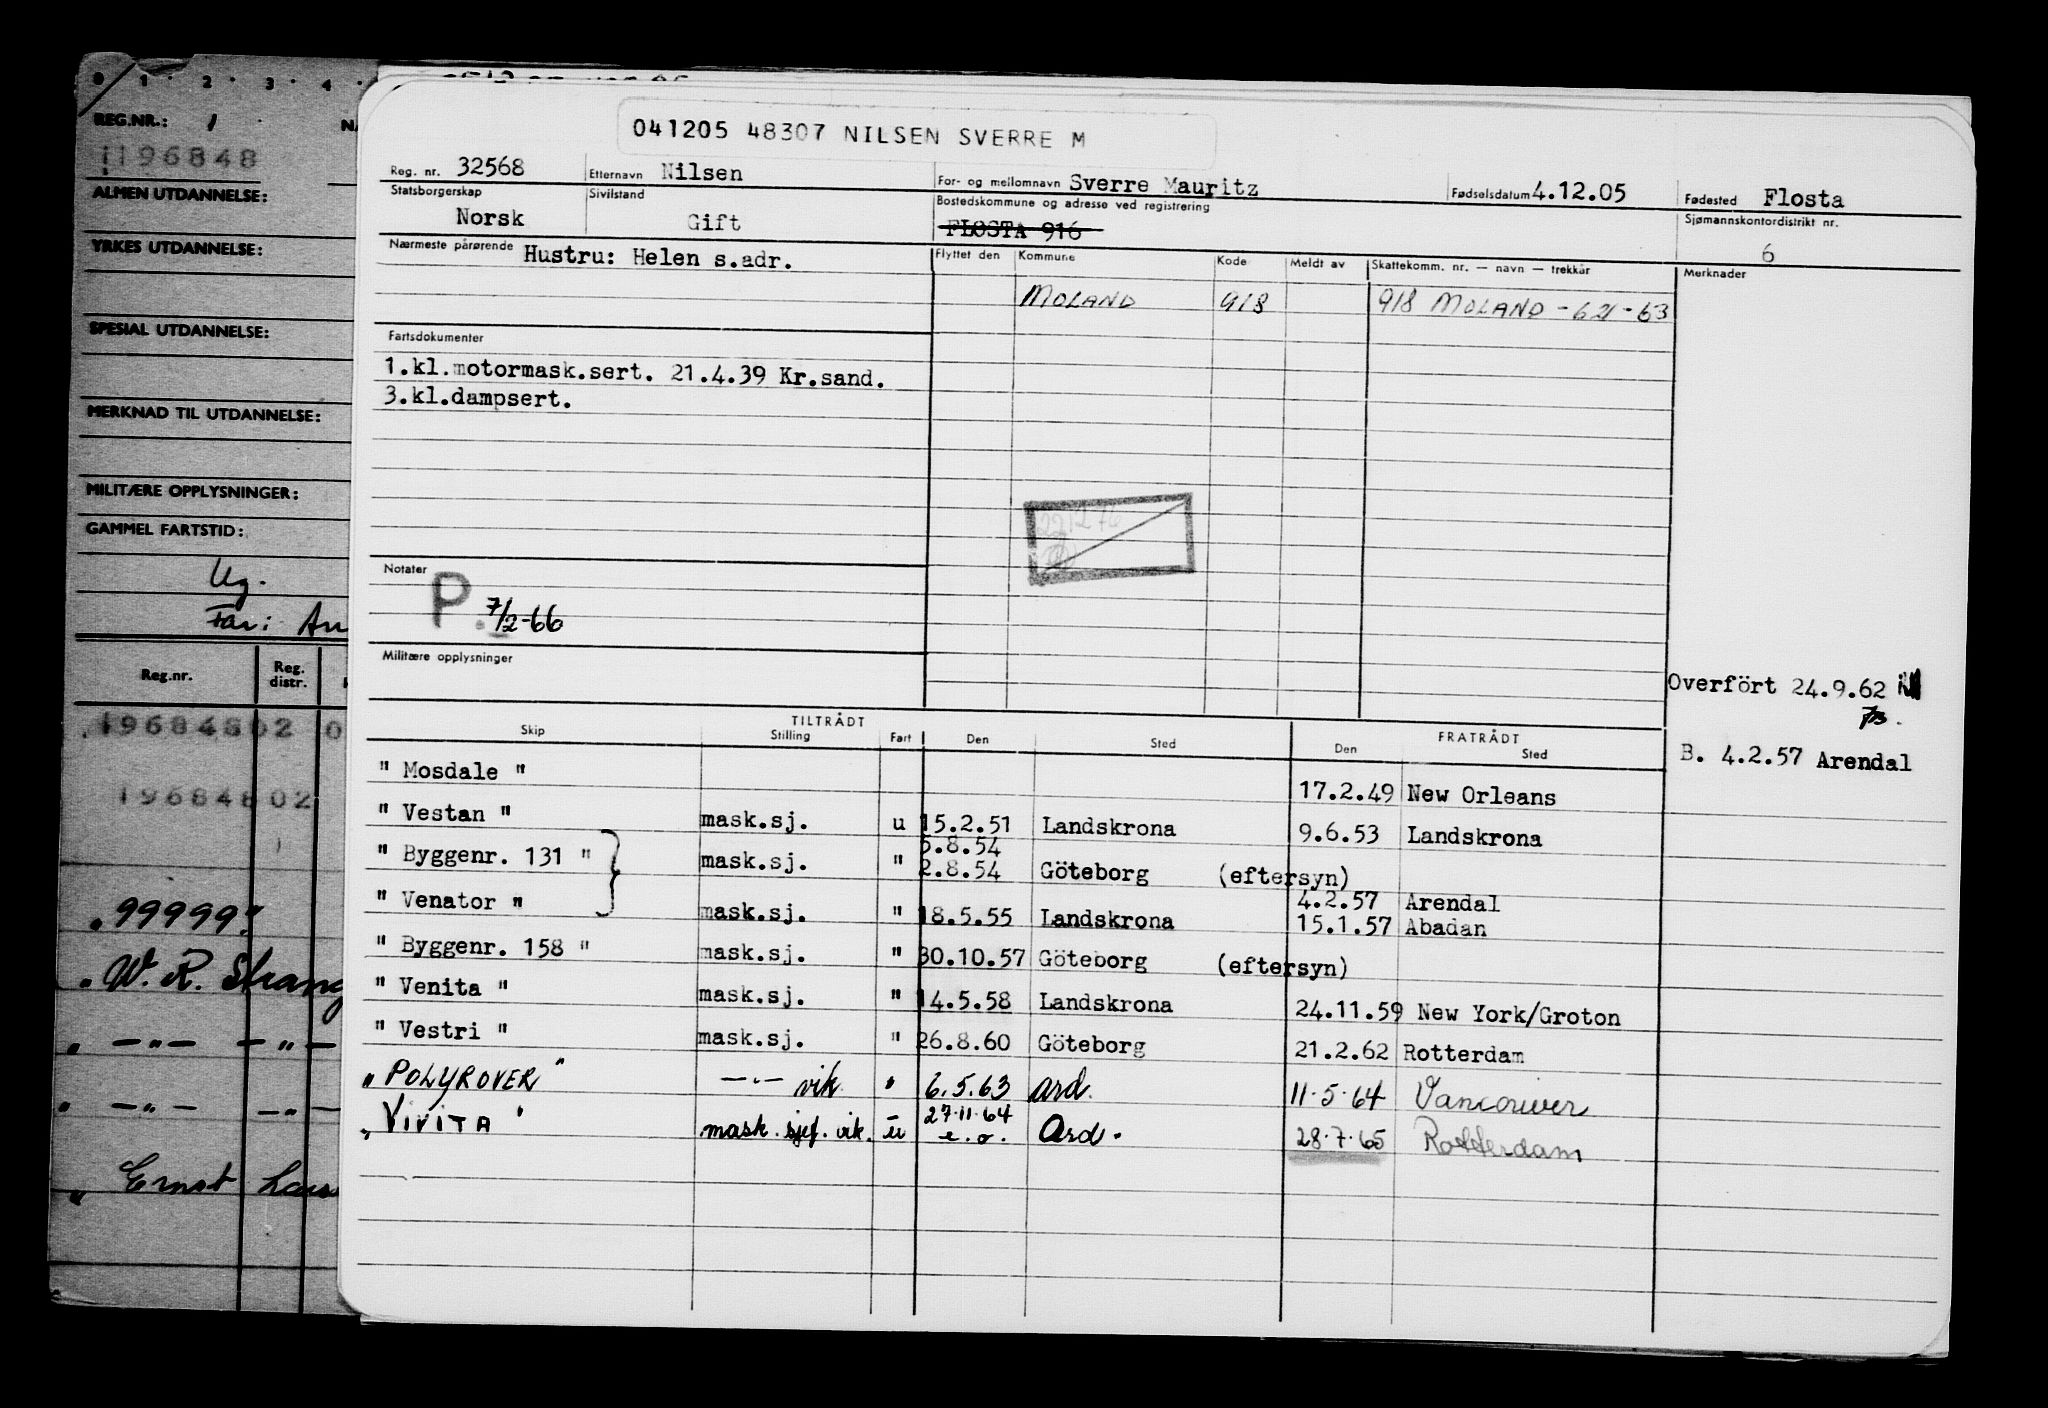 0 1 2 3 4
REG.NR.: 1
1196848
ALMEN UTDANNELSE:
YRKES UTDANNELSE:
SPESIAL UTDANNELSE:
MERKNAD TIL UTDANNELSE:
MILITÆRE OPPLYSNINGER:
GAMMEL FARTSTID:
Ug.
Far: An
Reg.nr. Reg. distr.
19684802 0
19684802
99999:
W. R. Strang
" —"— —"—
" —"— —"—
" Ernst Lars
041205 48307 NILSEN SVERRE M
Reg. nr. 32568 Etternavn Nilsen For- og mellomnavn Sverre Mauritz Fødselsdatum 4.12.05 Fødested Flosta
Statsborgerskap Norsk Sivilstand Gift Bostedskommune og adresse ved registrering FLOSTA 916 Sjømannskontordistrikt nr. 6
Nærmeste pårørende Hustru: Helen s.adr. Flyttet den Kommune Kode Meldt av Skattekomm. nr. — navn — trekkår Merknader
MOLAND 918 918 MOLAND - 621 - 63
Fartsdokumenter
1.kl.motormask.sert. 21.4.39 Kr.sand.
3.kl.dampsert.
Notater
P. 7/2-66
Militære opplysninger
Overfört 24.9.62
B. 4.2.57 Arendal
TILTRÅDT FRATRÅDT
Skip Stilling Fart Den Sted Den Sted
" Mosdale " 17.2.49 New Orleans
" Vestan " mask.sj. u 15.2.51 Landskrona 9.6.53 Landskrona
5.8.54
" Byggenr. 131 " mask.sj. " 2.8.54 Göteborg (eftersyn)
4.2.57 Arendal
" Venator " mask.sj. " 18.5.55 Landskrona 15.1.57 Abadan
" Byggenr. 158 " mask.sj. " 30.10.57 Göteborg (eftersyn)
" Venita " mask.sj. " 14.5.58 Landskrona 24.11.59 New York/Groton
" Vestri " mask.sj. " 26.8.60 Göteborg 21.2.62 Rotterdam
" POLYROVER " —"— vik " 6.5.63 Ard. 11.5.64 Vancouver
" VIVITA " mask.sjef.vik. u 27.11.64 e.o. Ard. 28.7.65 Rotterdam